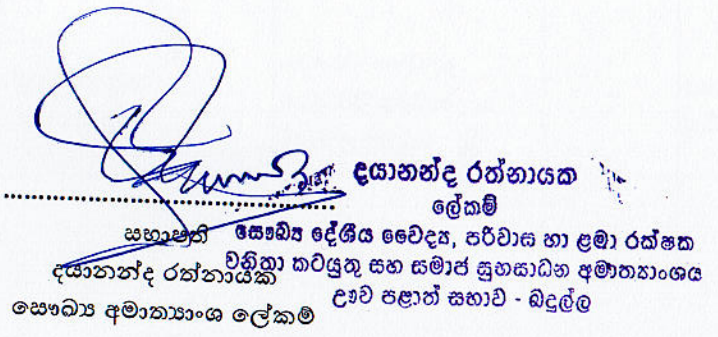 දයානන්ද රත්නායක
ලේකම්
සෞඛ්‍ය දේශීය වෛද්‍ය, පරිවාස හා ළමා රක්ෂක
වනිතා කටයුතු සහ සමාජ සුභසාධන අමාත්‍යාංශය
ඌව පළාත් සභාව - බදුල්ල
..........................................
සභාපති
දයානන්ද රත්නායක
සෞඛ්‍ය අමාත්‍යාංශ ලේකම්